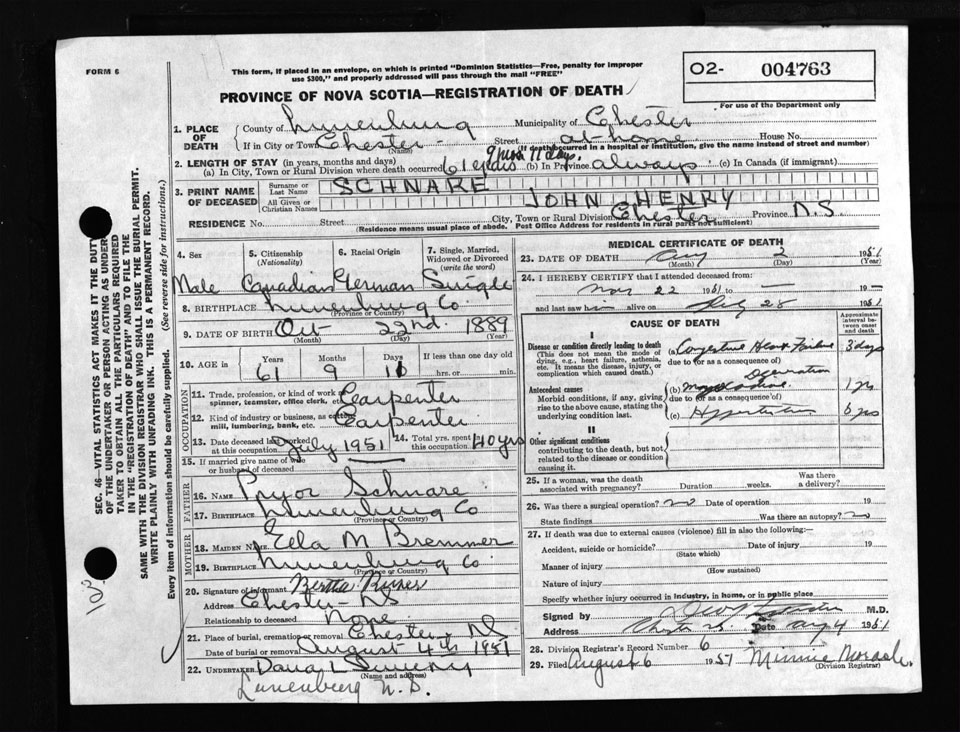 FORM 6
This form, if placed in an envelope, on which is printed "Dominion Statistics—Free, penalty for improper
use $300," and properly addressed will pass through the mail "FREE"
O2- 004763
For use of the Department only
PROVINCE OF NOVA SCOTIA—REGISTRATION OF DEATH
1. PLACE OF DEATH
County of Lunenburg Municipality of Chester
If in City or Town Chester Street at home House No.
(Name) (If death occurred in a hospital or institution, give the name instead of street and number)
2. LENGTH OF STAY (in years, months and days)
(a) In City, Town or Rural Division where death occurred 61 years 9 mos 11 days. (b) In Province always (c) In Canada (if immigrant)
3. PRINT NAME OF DECEASED
Surname or Last Name SCHNARE
All Given or Christian Names JOHN HENRY
RESIDENCE No. Street City, Town or Rural Division Chester Province N.S.
(Residence means usual place of abode. Post Office Address for residents in rural parts not sufficient)
4. Sex
Male
5. Citizenship (Nationality)
Canadian
6. Racial Origin
German
7. Single, Married, Widowed or Divorced (write the word)
Single
8. BIRTHPLACE Lunenburg Co.
(Province or Country)
9. DATE OF BIRTH Oct 22nd. 1889
(Month) (Day) (Year)
10. AGE in Years Months Days If less than one day old
61 9 11 hrs. or min.
OCCUPATION
11. Trade, profession, or kind of work as spinner, teamster, office clerk, etc. Carpenter
12. Kind of industry or business, as cotton mill, lumbering, bank, etc. Carpenter
13. Date deceased last worked at this occupation July 1951
14. Total yrs. spent in this occupation 40 yrs
15. If married give name of wife or husband of deceased
FATHER
16. NAME Pryor Schnare
17. BIRTHPLACE Lunenburg Co
(Province or Country)
MOTHER
18. MAIDEN NAME Eela M Bremner
19. BIRTHPLACE Lunenburg Co
(Province or Country)
20. Signature of informant Bertha
Address Chester NS
Relationship to deceased None
21. Place of burial, cremation or removal Chester, NS
Date of burial or removal August 4th 1951
22. UNDERTAKER
(Name and address)
Lunenburg N.S.
MEDICAL CERTIFICATE OF DEATH
23. DATE OF DEATH Aug 2 1951
(Month) (Day) (Year)
24. I HEREBY CERTIFY that I attended deceased from:
Nov 22 1951 to — 19—
and last saw him alive on July 28 1951
CAUSE OF DEATH
Approximate interval between onset and death
I
Disease or condition directly leading to death
(This does not mean the mode of dying, e.g., heart failure, asthenia, etc. It means the disease, injury, or complication which caused death.)
(a) Congestive Heart Failure 3 days
due to (or as a consequence of)
Antecedent causes
Morbid conditions, if any, giving rise to the above cause, stating the underlying condition last.
(b) Myocardial 1 yrs
due to (or as a consequence of)
(c) Hypertension 6 yrs
II
Other significant conditions
contributing to the death, but not related to the disease or condition causing it.
25. If a woman, was the death associated with pregnancy? Duration weeks. Was there a delivery?
26. Was there a surgical operation? no Date of operation 19
State findings Was there an autopsy? no
27. If death was due to external causes (violence) fill in also the following:—
Accident, suicide or homicide? Date of injury 19
(State which)
Manner of injury
(How sustained)
Nature of injury
Specify whether injury occurred in industry, in home, or in public place
Signed by M.D.
Address Chester N.S. Date Aug 4 1951
28. Division Registrar's Record Number 6
29. Filed August 6 1951 Minnie Morash.
(Division Registrar)
SEC. 46—VITAL STATISTICS ACT MAKES IT THE DUTY
OF THE UNDERTAKER OR PERSON ACTING AS UNDER-
TAKER TO OBTAIN ALL THE PARTICULARS REQUIRED
IN THE "REGISTRATION OF DEATH" AND TO FILE THE
SAME WITH THE DIVISION REGISTRAR WHO SHALL ISSUE THE BURIAL PERMIT.
WRITE PLAINLY WITH UNFADING INK. THIS IS A PERMANENT RECORD.
Every item of information should be carefully supplied. (See reverse side for instructions.)